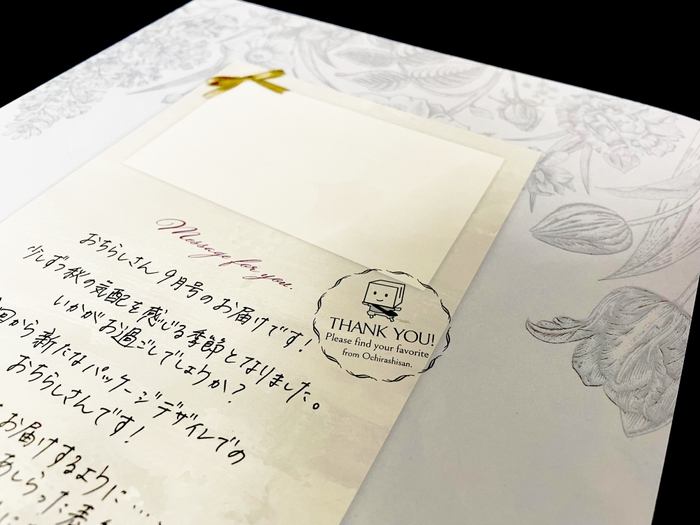 Message for you.
おちらしさん 9月号のお届けです!
少しずつ秋の気配を感じる季節となりました。
いかがお過ごしでしょうか?
回から新たなパッケージデザインでの
おちらしさんです!
お届けするように…
あしらった
THANK YOU!
Please find your favorite
from Ochirashisan.